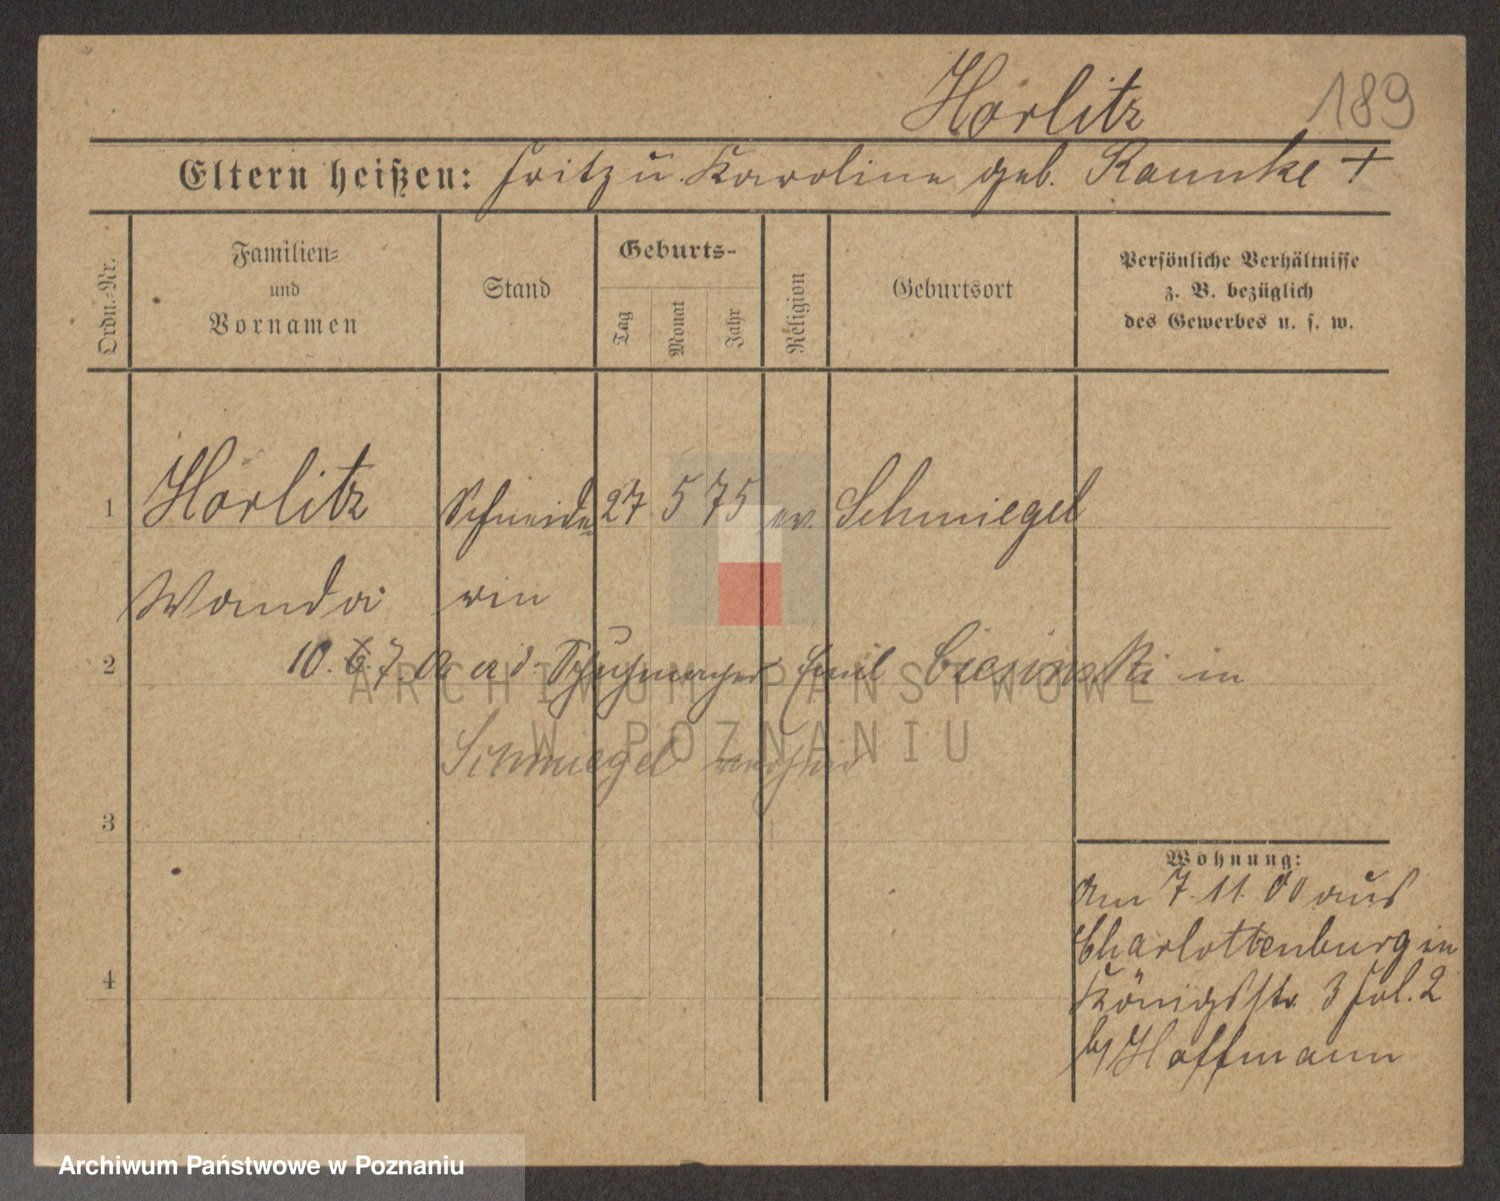 Horlitz 189
Eltern heißen: Fritz u. Karoline geb. Raunke +
Ordn.-Nr.
Familien-
und
Vornamen
Stand
Geburts-
Tag
Monat
Jahr
Religion
Geburtsort
Persönliche Verhältnisse
z. B. bezüglich
des Gewerbes u. s. w.
1 Horlitz Schneide 27 5 75 ev. Schmiegel
Wanda rin
2 10. 7. a d Schuhmacher Emil in
Schmiegel
3
4
Wohnung:
am 7. 11. 00 aus
Charlottenburg in
Königsstr. 3 Hof. 2
b/ Hoffmann
ARCHIWUM PAŃSTWOWE
W POZNANIU
Archiwum Państwowe w Poznaniu